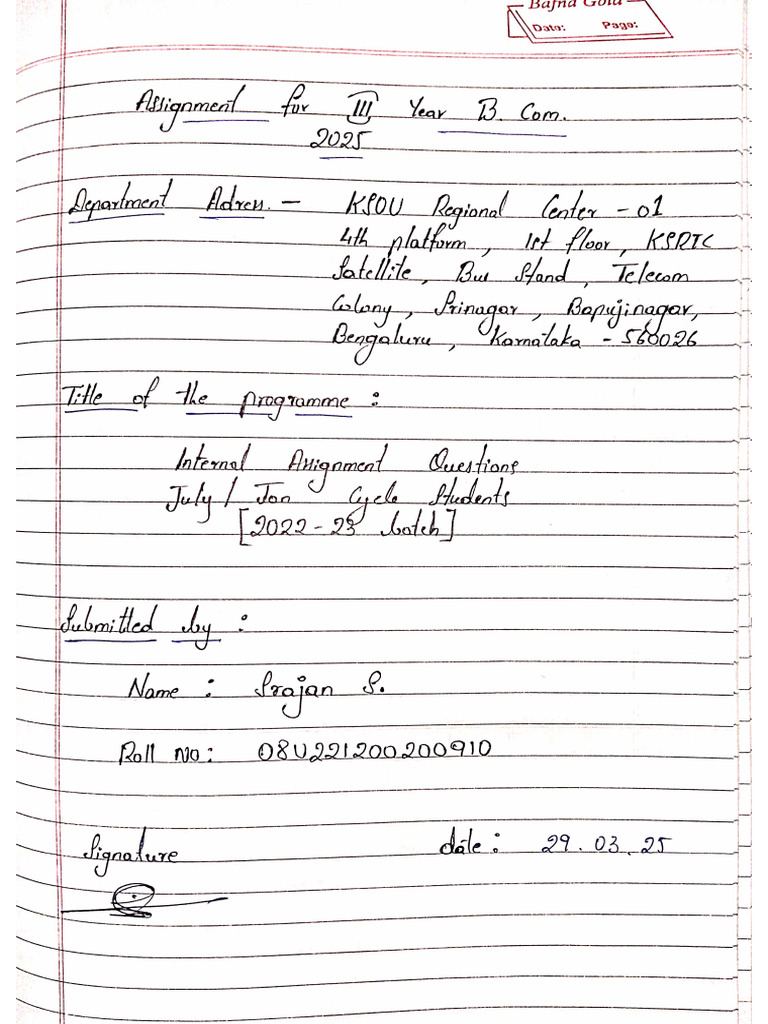 Bafna Gold
Date: Page:
Assignment for III Year B. Com.
2025
Department Adress. - KSOU Regional Center - 01
4th platform, 1st floor, KSRTC
Satellite, Bus Stand, Telecom
Colony, Srinagar, Bapujinagar,
Bengaluru, Karnataka - 560026
Title of the programme :
Internal Assignment Questions
July / Jan Cycle Students
[2022-23 batch]
Submitted by :
Name : Srajan S.
Roll No: 08U221200200910
Signature date : 29.03.25